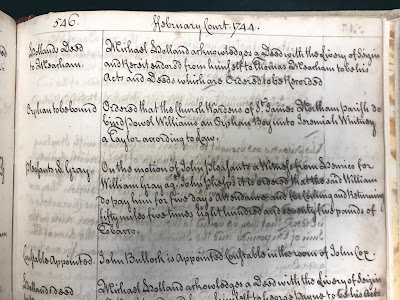 546. February Court 1744.
Holland's Deed
to Mearham.
Michael Holland acknowledges a Deed with the Livery of Seizin
and Receit endorsd from himself to Thomas Mearham to be his
Acts and Deeds which are Ordered to be Recorded
Orphan to be bound
Ordered that the Church Wardens of St. James Northam parish do
bind Powel Williams an Orphan Boy unto Jeremiah Whitney
a Taylor according to Law.
Pleasants & Gray
On the motion of John Pleasants a Witness from Henrico for
William Gray agt. John Phelps it is ordered that the said William
do pay him for five days Attendance and for Coming and Returning
fifty miles five times Eight hundred and seventy five pounds of
Tobacco.
Constable Appointed.
John Bullock is Appointed Constable in the room of John Cox
Holland Deed
Michael Holland acknowledges a Deed with the Livery of Seizin
himself to George Payne to be his Acts